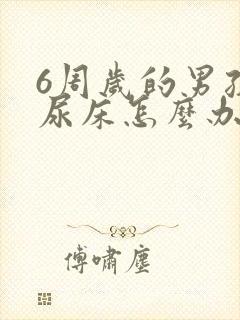 6周歲的男孩
尿床怎麼办
傅嘯塵